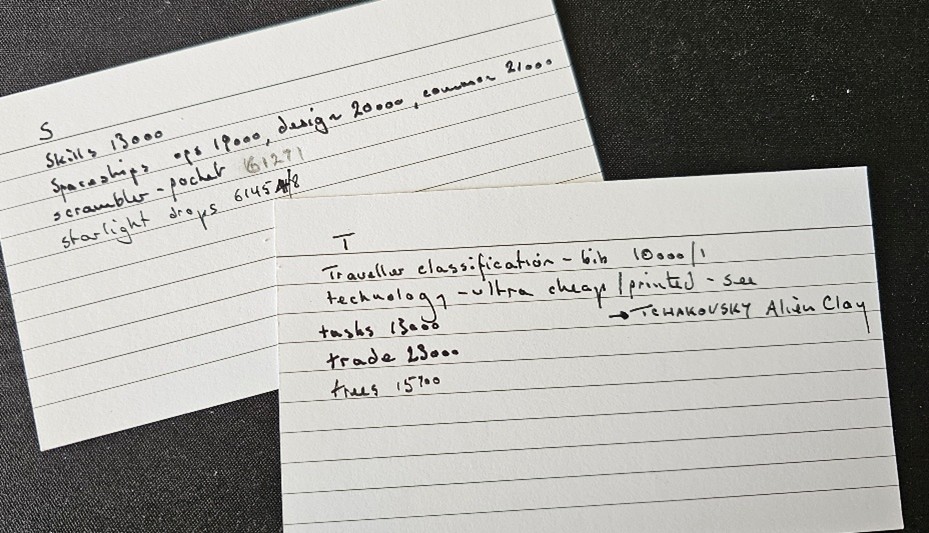 S
Skills 13000
Spaceships ops 19000, design 20000, common 21000
scrambler - pocket 61271
starlight drops 6145
T
Traveller classification - bib 10000/1
technology - ultra cheap / printed - see
→ TCHAKOVSKY Alien Clay
tasks 13000
trade 23000
trees 15700